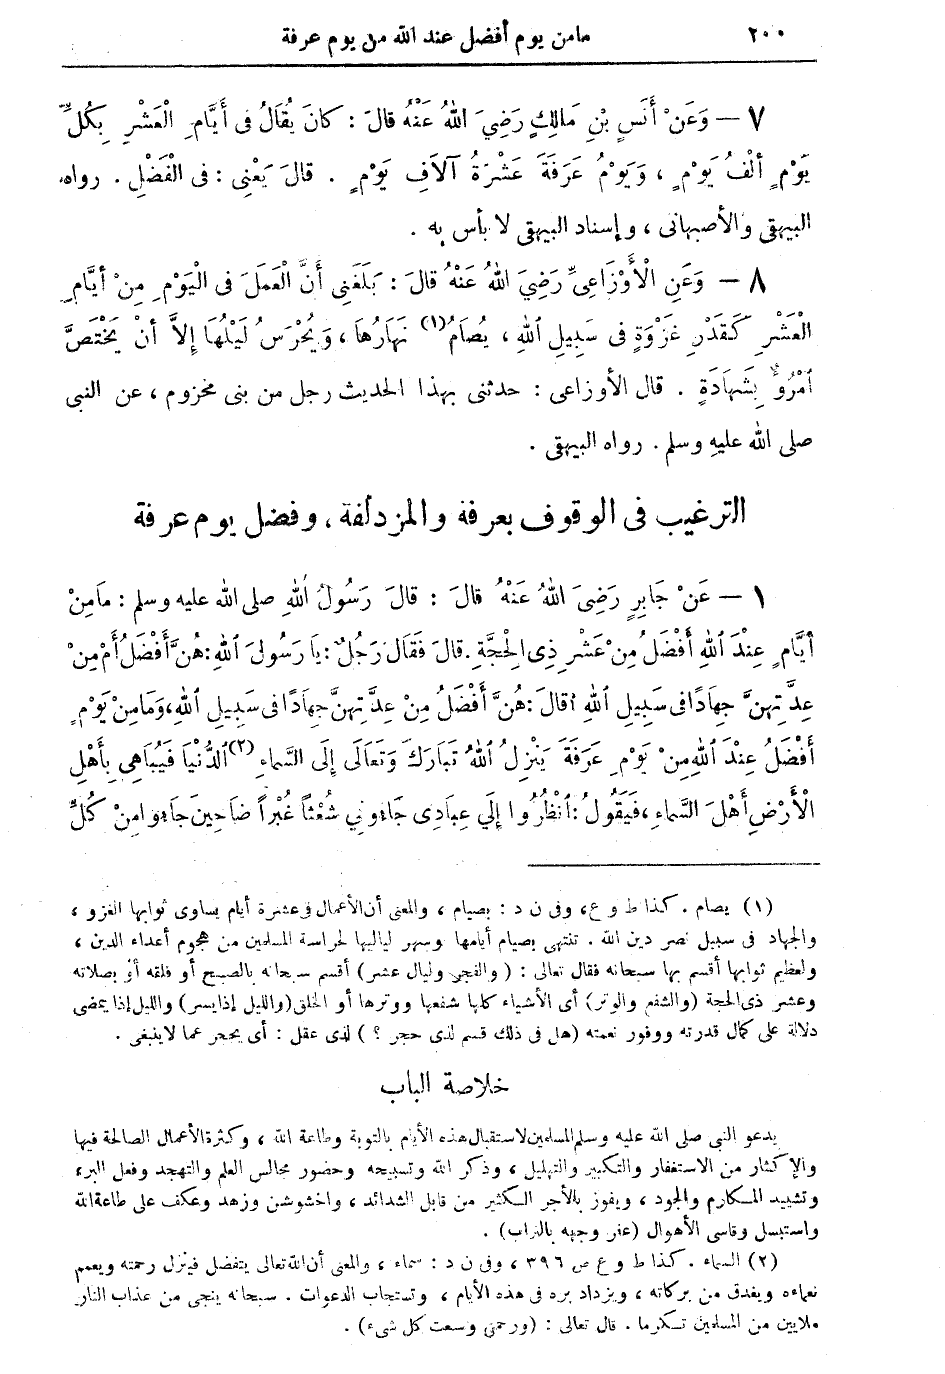 ٢٠٠ مامن يوم أفضل عند الله من يوم عرفة
٧ — وَعَنْ أَنَسِ بْنِ مَالِكٍ رَضِيَ اللهُ عَنْهُ قَالَ : كَانَ يُقَالُ فِى أَيَّامِ الْعَشْرِ بِكُلِّ
يَوْمٍ أَلْفُ يَوْمٍ ، وَيَوْمُ عَرَفَةَ عَشْرَةُ آلَافِ يَوْمٍ . قَالَ يَعْنِى : فِى الْفَضْلِ . رواه
البيهقى والأصبهانى ، وإسناد البيهقى لا بأس به .
٨ — وَعَنِ الْأَوْزَاعِىِّ رَضِيَ اللهُ عَنْهُ قَالَ : بَلَغَنِى أَنَّ الْعَمَلَ فِى الْيَوْمِ مِنْ أَيَّامِ
الْعَشْرِ كَقَدْرِ غَزْوَةٍ فِى سَبِيلِ اللهِ ، يُصَامُ (١) نَهَارُهَا ، وَيُحْرَسُ لَيْلُهَا إِلاَّ أَنْ يَخْتَصَّ
امْرُؤٌ بِشَهَادَةٍ . قال الأوزاعى : حدثنى بهذا الحديث رجل من بنى مخزوم ، عن النبى
صلى الله عليه وسلم . رواه البيهقى .
الترغيب فى الوقوف بعرفة والمزدلفة ، وفضل يوم عرفة
١ — عَنْ جَابِرٍ رَضِىَ اللهُ عَنْهُ قَالَ : قَالَ رَسُولُ اللهِ صلى الله عليه وسلم : مَامِنْ
أَيَّامٍ عِنْدَ اللهِ أَفْضَلُ مِنْ عَشْرِ ذِى الْحِجَّةِ . قَالَ فَقَالَ رَجُلٌ : يَا رَسُولَ اللهِ : هُنَّ أَفْضَلُ أَمْ مِنْ
عِدَّتِهِنَّ جِهَادًا فِى سَبِيلِ اللهِ ؟ قَالَ : هُنَّ أَفْضَلُ مِنْ عِدَّتِهِنَّ جِهَادًا فِى سَبِيلِ اللهِ ، وَمَامِنْ يَوْمٍ
أَفْضَلُ عِنْدَ اللهِ مِنْ يَوْمِ عَرَفَةَ يَنْزِلُ اللهُ تَبَارَكَ وَتَعَالَى إِلَى السَّمَاءِ (٢) الدُّنْيَا فَيُبَاهِى بِأَهْلِ
الْأَرْضِ أَهْلَ السَّمَاءِ ، فَيَقُولُ : انْظُرُوا إِلَى عِبَادِى جَاءُونِى شُعْثًا غُبْرًا ضَاحِينَ جَاءُوا مِنْ كُلِّ
(١) يصام . كذا ط و ع ، وفى ن د : بصيام ، والمعنى أن الأعمال فى عشرة أيام يساوى ثوابها الغزو ،
والجهاد فى سبيل نصر دين الله . تنتهى بصيام أيامها وسهر لياليها لحراسة المسلمين من هجوم أعداء الدين ،
ولعظيم ثوابها أقسم بها سبحانه فقال تعالى : ( والفجر وليال عشر ) أقسم سبحانه بالصبح أو فلقه أو بصلاته
وعشر ذى الحجة (والشفع والوتر) أى الأشياء كلها شفعها ووترها أو الخلق (والليل إذا يسر) والليل إذا يمضى
دلالة على كمال قدرته ووفور نعمته (هل فى ذلك قسم لذى حجر ؟ ) لذى عقل : أى يحجر عما لاينبغى .
خلاصة الباب
يدعو النبى صلى الله عليه وسلم المسلمين لاستقبال هذه الأيام بالتوبة وطاعة الله ، وكثرة الأعمال الصالحة فيها
والإكثار من الاستغفار والتكبير والتهليل ، وذكر الله وتسبيحه وحضور مجالس العلم والتهجد وفعل البر،
وتشييد المكارم والجود ، ويفوز بالأجر الكثير من قابل الشدائد ، واخشوشن وزهد وعكف على طاعة الله
واستبسل وقاسى الأهوال (عفر وجهه بالتراب) .
(٢) السماء . كذا ط و ع ص ٣٩٦ ، وفى ن د : سماء ، والمعنى أن الله تعالى يتفضل فينزل رحمته ويعمم
نعماءه ويغدق من بركاته ، ويزداد بره فى هذه الأيام ، وتستجاب الدعوات . سبحانه ينجى من عذاب النار
ملايين من المسلمين تكرما . قال تعالى : (ورحمتى وسعت كل شىء) .